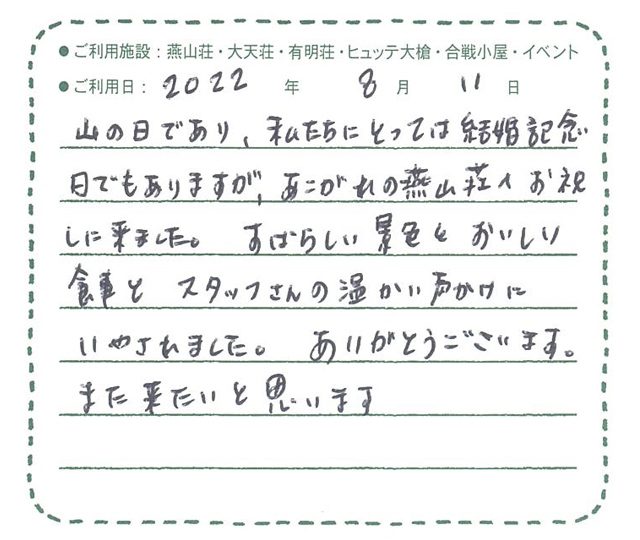 ●ご利用施設：燕山荘・大天荘・有明荘・ヒュッテ大槍・合戦小屋・イベント
●ご利用日： 2022 年 8 月 11 日
山の日であり、私たちにとっては結婚記念
日でもありますが、あこがれの燕山荘へお祝
しに来ました。 すばらしい景色とおいしい
食事と スタッフさんの温かい声かけに
いやされました。 ありがとうございます。
また来たいと思います